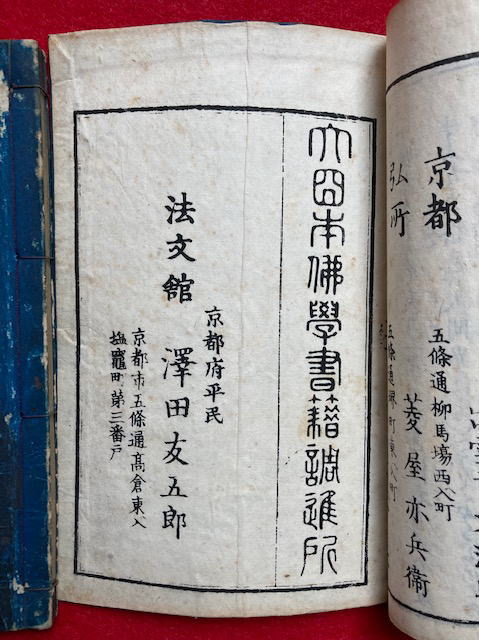 京都
五條通柳馬塲西入町
菱屋亦兵衞
弘所
大日本佛學書籍調進所
京都府平民
法文館 澤田友五郎
京都市五條通髙倉東入
塩竈町第三番戸